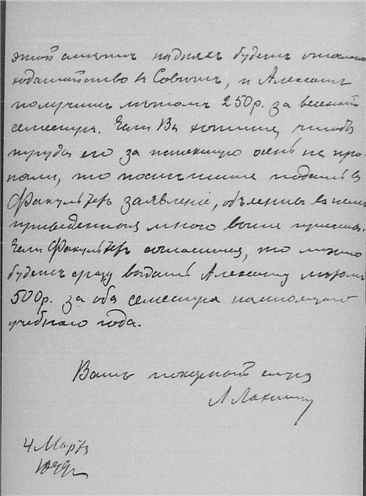 этой смыслъ на дняхъ будетъ послано
ходатайство въ Совѣтъ, и Алексинъ
получитъ 250 р. за весенній
семестръ. Если Вы хотите, чтобы
труды его за истекшую осень не про-
пали, то поспѣшите подать въ
Факультетъ заявленіе, объяснивъ въ немъ
приведенныя мною выше причины.
Если Факультетъ согласится, то можно
будетъ сразу выдать Алексину
500 р. за оба семестра настоящаго
учебнаго года.
Вашъ покорный слуга
Л. Лахтинъ
4 Марта
1899 г.